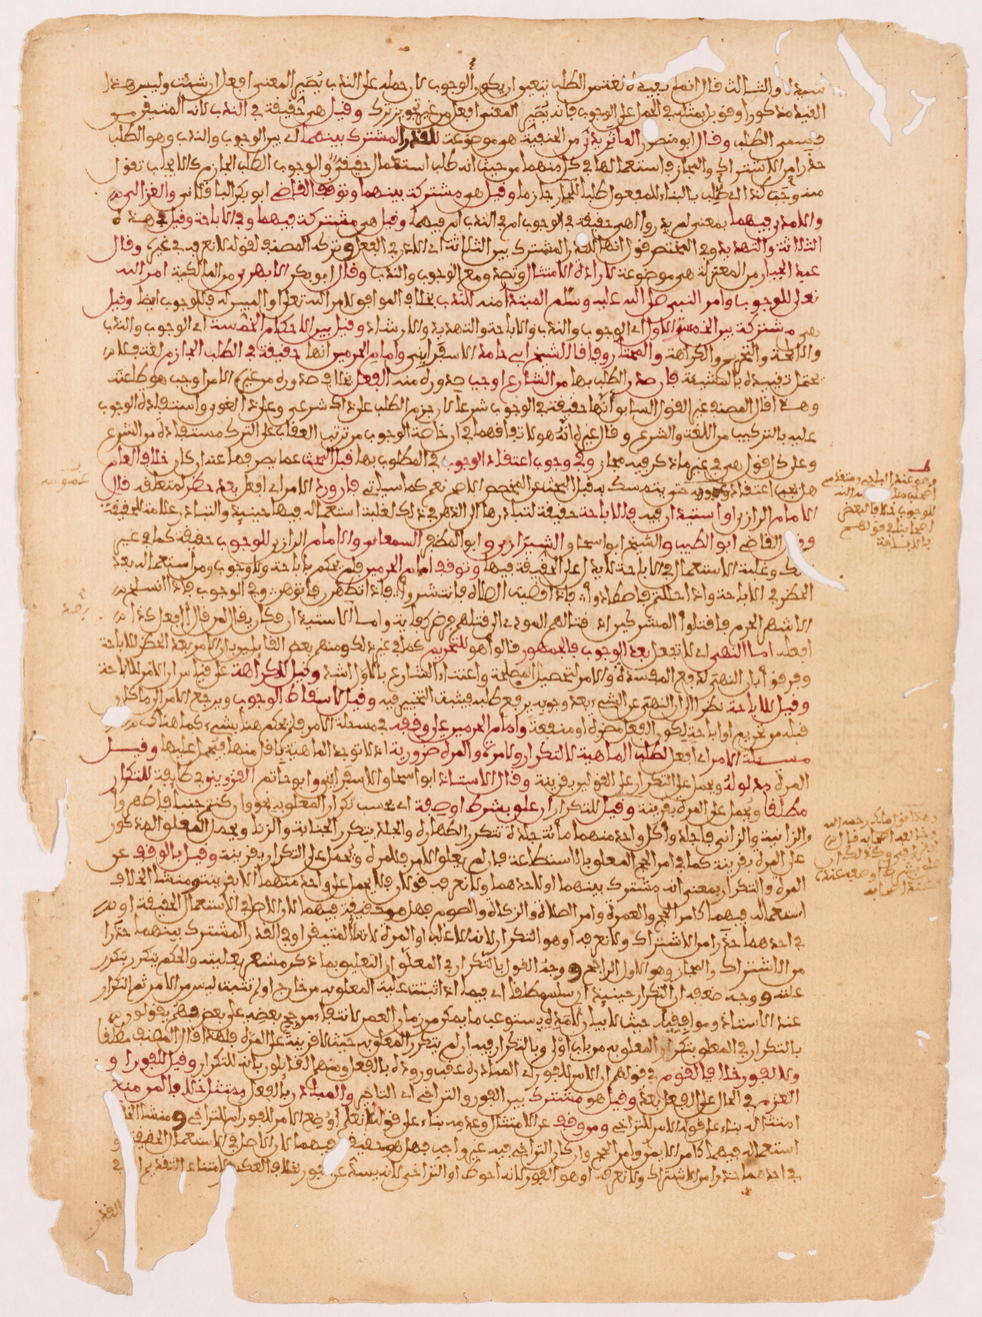 والثالث فلا انه لم يقيده مقتض الطلب بتعين ان يكون الوجوب كان حمله على الندب يصير المعنى افعل ان شئت وليس هذا
القيد مذكورا وقوبل بمثله في الحمل على الوجوب فانه يصير المعنى افعل من غير تجويز ترك وقيل هي حقيقة في الندب لانه المتيقن من
قسمي الطلب وقال ابو منصور الماتريدي من الحنفية هي موضوعة للقدر المشترك بينهما اي بين الوجوب والندب وهو الطلب
حذرا من الاشتراك والمجاز فاستعمالها في كل منهما من حيث انه طلب استعمال حقيقي والوجوب الطلب الجازم كالايجاب تقول
منه وجب كذا اي طلب بالبناء للمفعول طلبا جازما وقيل هي مشتركة بينهما وتوقف القاضي ابو بكر الباقلاني والغزالي
والامدي فيهما بمعنى لم يدروا اهي حقيقة في الوجوب ام في الندب ام فيهما وقيل هي مشتركة فيهما وفي الاباحة وقيل في هذه
الثلاثة والتهديد وفي المختصر قول انها للقدر المشترك بين الثلاثة اي الاذن في الفعل وتركه المصنف لقوله لا نعرفه في غيره وقال
عبد الجبار من المعتزلة هي موضوعة لارادة الامتثال وتصدق مع الوجوب والندب وقال ابو بكر الابهري من المالكية امر الله
تعلى للوجوب وامر النبي صلى الله عليه وسلم المبتدا منه للندب بخلاف الموافق لامر الله تعلى او المبين له فللوجوب ايضا وقيل
هي مشتركة بين الخمسة الاول اي الوجوب والندب والاباحة والتهديد والارشاد وقيل بين الاحكام الخمسة اي الوجوب والندب
والاباحة والتحريم والكراهة والمختار وفاقا للشيخ ابي حامد الاسفرايني وامام الحرمين انها حقيقة في الطلب الجازم لغة فلا
يحتمل تقييده بالمشيئة فان صدر الطلب بها من الشارع اوجب صدوره منه الفعل بخلاف صدوره من غيره الا من اوجب هو طاعته
وهذا قال المصنف غير القول السابق انها حقيقة في الوجوب شرعا لان جزم الطلب على ذاك شرعي وعلى ذا لغوي واستفادة الوجوب
عليه بالتركيب من اللغة والشرع وقال غيره انه هو لاتفاقهما في ان خاصة الوجوب من ترتب العقاب على الترك مستفادة من الشرع
وعلى كل قول هي في غير ما ذكر فيه مجاز وفي وجوب اعتقاد الوجوب في المطلوب بها قبل البحث عما يصرفها عنه ان كان خلاف العام
هل يجب اعتقاد عمومه حتى يتمسك به قبل البحث عن المخصص الاصح نعم كما سياتي فان ورد الامر اي افعل بعد حظر لمتعلقه قال
الامام الرازي او استيذان فيه فللاباحة حقيقة لتبادرها الى الذهن في ذلك لغلبة استعماله فيها حينيذ والتبادر علامة الحقيقة
وقال القاضي ابو الطيب والشيخ ابو اسحاق الشيرازي وابو المظفر السمعاني والامام الرازي للوجوب حقيقة كما في غير
ذلك وغلبة الاستعمال في الاباحة لا تدل على الحقيقة فيها وتوقف امام الحرمين فلم يحكم باباحة ولا وجوب ومن استعماله بعد
الحظر في الاباحة واذا حللتم فاصطادوا فاذا قضيت الصلاة فانتشروا فاذا تطهرن فاتوهن وفي الوجوب فاذا انسلخ
الاشهر الحرم فاقتلوا المشركين اذ قتالهم المودي الى قتلهم فرض كفاية واما بعد الاستيذان فكان يقال لمن قال أأفعل كذا
افعله اما النهي اي لا تفعل بعد الوجوب فالجمهور قالوا هو للتحريم كما في غير ذلك ومنهم بعض القائلين بان الامر بعد الحظر للاباحة
وفرقوا بان النهي لدفع المفسدة والامر لتحصيل المصلحة واعتناء الشارع بالاول اشد وقيل للكراهة على قياس ان الامر للاباحة
وقيل للاباحة نظرا الى ان النهي عن الشيء بعد وجوبه يرفع طلبه فيثبت التخيير فيه وقيل لاسقاط الوجوب ويرجع الامر الى ما كان
قبله من تحريم او اباحة لكون الفعل مضرة او منفعة وامام الحرمين على وقفه في مسئلة الامر فلم يحكم هنا بشيء كما هناك
مسئلة الامر اي افعل لطلب الماهية لا لتكرار ولا مرة والمرة ضرورية اذ لا توجد الماهية باقل منها فيحمل عليها وقيل
المرة مدلوله ويحمل على التكرار على القولين بقرينة وقال الاستاذ ابو اسحاق الاسفرايني وابو حاتم القزويني في طايفة للتكرار
مطلقا ويحمل على المرة بقرينة وقيل للتكرار ان علق بشرط او صفة اي بحسب تكرار المعلق به نحو وان كنتم جنبا فاطهروا
والزانية والزاني فاجلدوا كل واحد منهما ماية جلدة تتكرر الطهارة والجلد بتكرر الجنابة والزنا ويحمل المعلق المذكور
على المرة بقرينة كما في امر الحج المعلق بالاستطاعة فان لم يعلق الامر فللمرة ويحمل على التكرار بقرينة وقيل بالوقف عن
المرة والتكرار بمعنى انه مشترك بينهما او لاحدهما ولا نعرفه قولان فلا يحمل على واحد منهما الا بقرينة ومنشا الخلاف
استعماله فيهما كامر الحج والعمرة وامر الصلاة والزكاة والصوم فهل هو حقيقة فيهما لان الاصل في الاستعمال الحقيقة او
في احدهما حذرا من الاشتراك ولا نعرفه او هو التكرار لانه الاغلب او المرة لانها المتيقن او في القدر المشترك بينهما حذرا
من الاشتراك والمجاز وهو الاول الراجح ووجه القول بالتكرار في المعلق ان التعليق بما ذكر مشعر بعليته والحكم يتكرر بتكرر
علته ووجه ضعفه ان التكرار حينيذ ان سلم مطلقا اي فيما اذا ثبتت علية المعلق به من خارج او لم تثبت ليس من الامر ثم التكرار
عند الاستاذ وموافقيه حيث لا بيان لامده يستوعب ما يمكن من زمان العمر لانتفاء مرجح بعضه على بعض فهم يقولون
بالتكرار في المعلق بتكرر المعلق به من باب اولى وبالتكرار فيه ان لم يتكرر المعلق به حيث لا قرينة على المرة فلهذا قال المصنف مطلقا
ولا لفور خلافا لقوم في قولهم ان الامر للفور اي المبادرة عقب وروده بالفعل ومنهم القائلون بانه للتكرار وقيل للفور او
العزم في الحال على الفعل بعد وقيل هو مشترك بين الفور والتراخي اي التاخير والمبادر بالفعل ممتثل خلافا لمن منع
امتثاله بناء على قوله الامر للتراخي ومن وقف عن الامتثال وعدمه بناء على قوله لا نعلم اوضع الامر للفور ام للتراخي ومنشا
استعماله فيهما كامر الايمان وامر الحج وان كان التراخي فيه غير واجب فهل هو حقيقة فيهما لان الاصل في الاستعمال الحقيقة
في احدهما حذرا من الاشتراك ولا نعرفه او هو الفور لانه احوط او التراخي لانه يسد عن الفور بخلاف العكس لامتناع التقديم